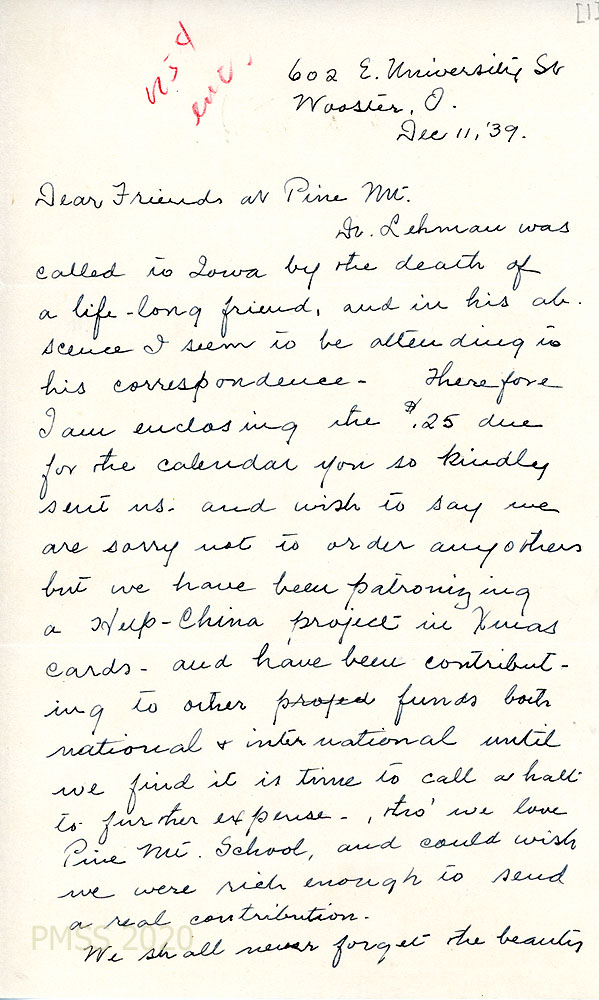 [1]
25¢
enc.
602 E. University St
Wooster, O.
Dec 11, '39.
Dear Friends at Pine Mt.
Dr. Lehman was
called to Iowa by the death of
a life-long friend, and in his ab-
scence I seem to be attending to
his correspondence - Therefore
I am enclosing the $.25 due
for the calendar you so kindly
sent us - and wish to say we
are sorry not to order any others
but we have been patronizing
a Help-China project in Xmas
cards - and have been contribut-
ing to other project funds both
national & international until
we find it is time to call a halt
to further expense - , tho' we love
Pine Mt. School, and could wish
we were rich enough to send
a real contribution.
We shall never forget the beauties
PMSS 2020